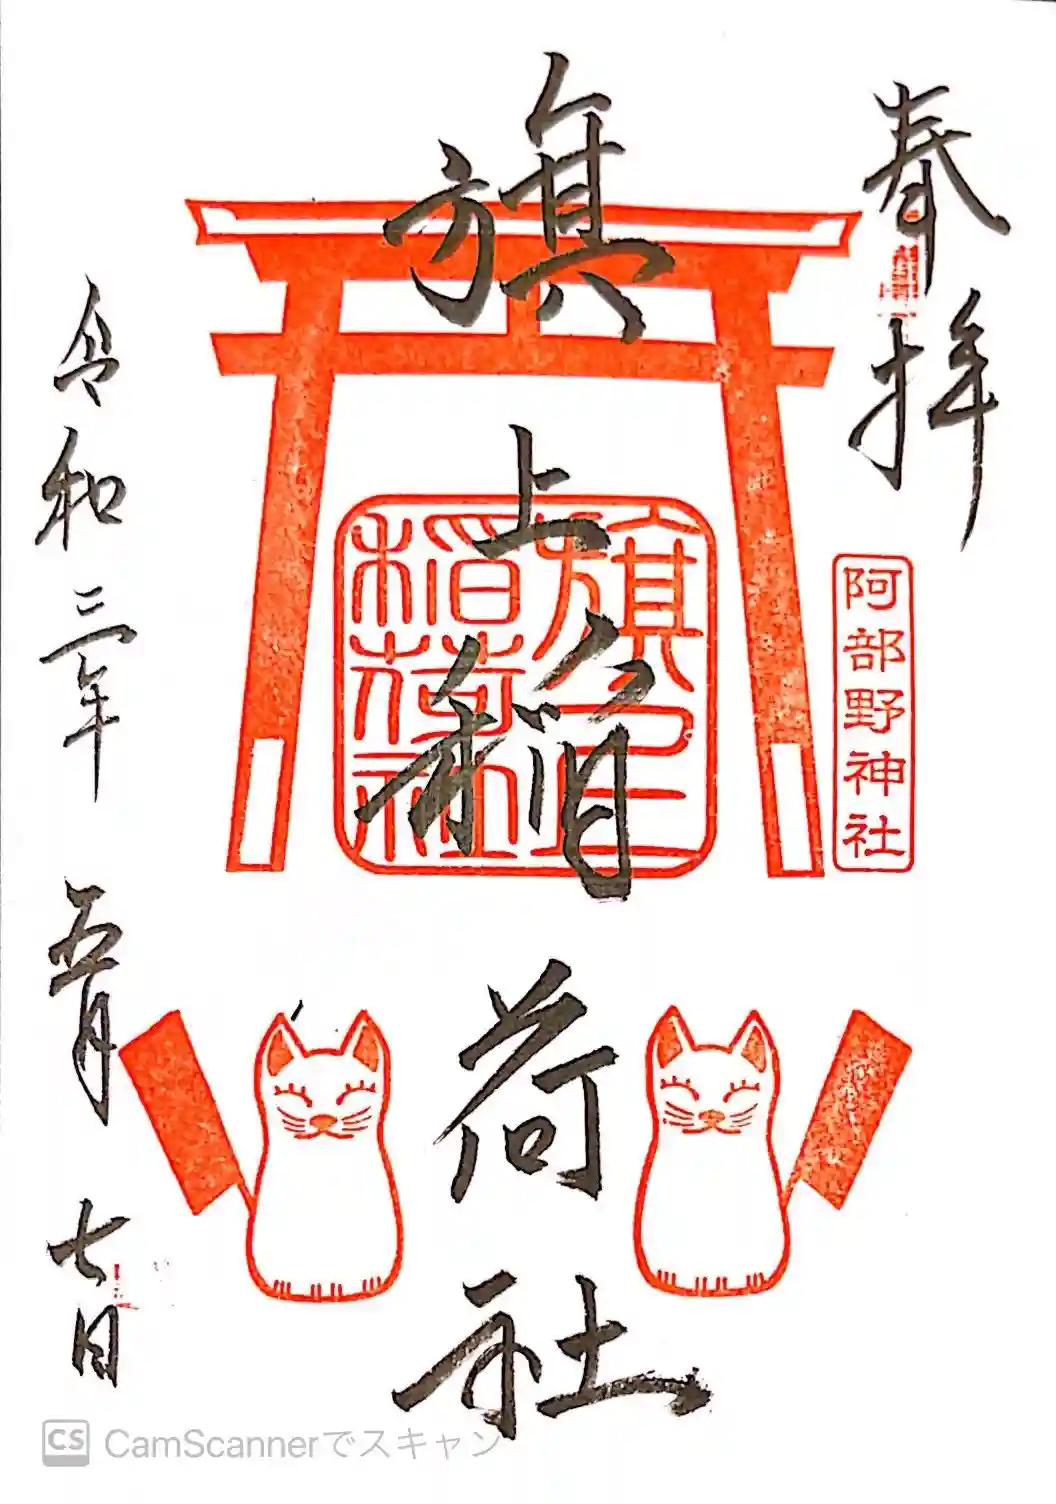 奉拝
阿部野神社
旗上稲荷社
旗上
稲荷社
令和三年 五月 七日
CS CamScannerでスキャン